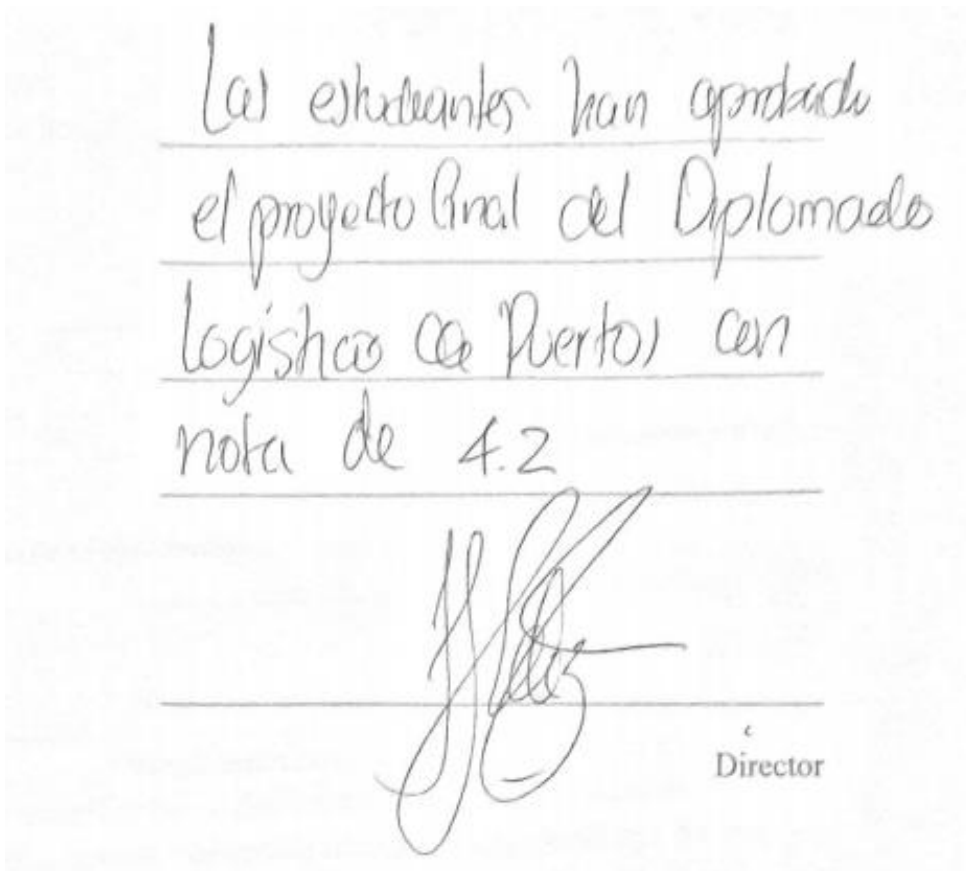 Las estudiantes han aprobado
el proyecto final del Diplomado
Logistica de Puertos con
nota de 4.2
Director